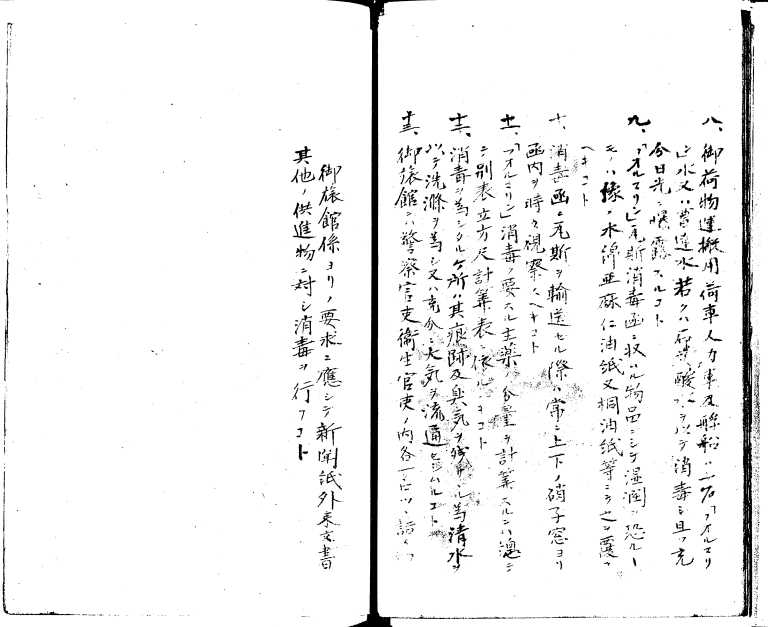 八、御荷物運搬用荷車人力車及艀船ハ一%「フオルマリ
ン」水又ハ
今日光ニ曝露スルコト
九、「フオルマリン」瓦斯消毒函ニ収ハル物品ニシテ湿潤ヲ恐ルヽ
モノハ豫メ水 亜麻仁油紙又桐油紙等ニテ之ヲ覆フ
ヘキコト
十、消毒函ニ瓦斯ヲ輸送セル際ハ常ニ上下ノ硝子窓ヨリ
函内ヲ時々視察スヘキコト
十一、「フオルマリン」消毒ノ要スル主薬ノ分量ヲ計算スルニハ
別表立方尺計算表ニ依ルヘキコト
十二、消毒ヲ為シタル箇所ハ其痕跡及臭気ヲ残 ル為清水ヲ
以テ洗滌ヲ為シ又ハ充分ニ大気ヲ流通セシムルコト
十三、御旅館ニハ警察官吏衛生官吏ノ内各一名ツヽ
御旅館係ヨリノ要求ニ應シテ新聞紙外来文書
其他ノ供進物ニ対シ消毒ヲ行フコト